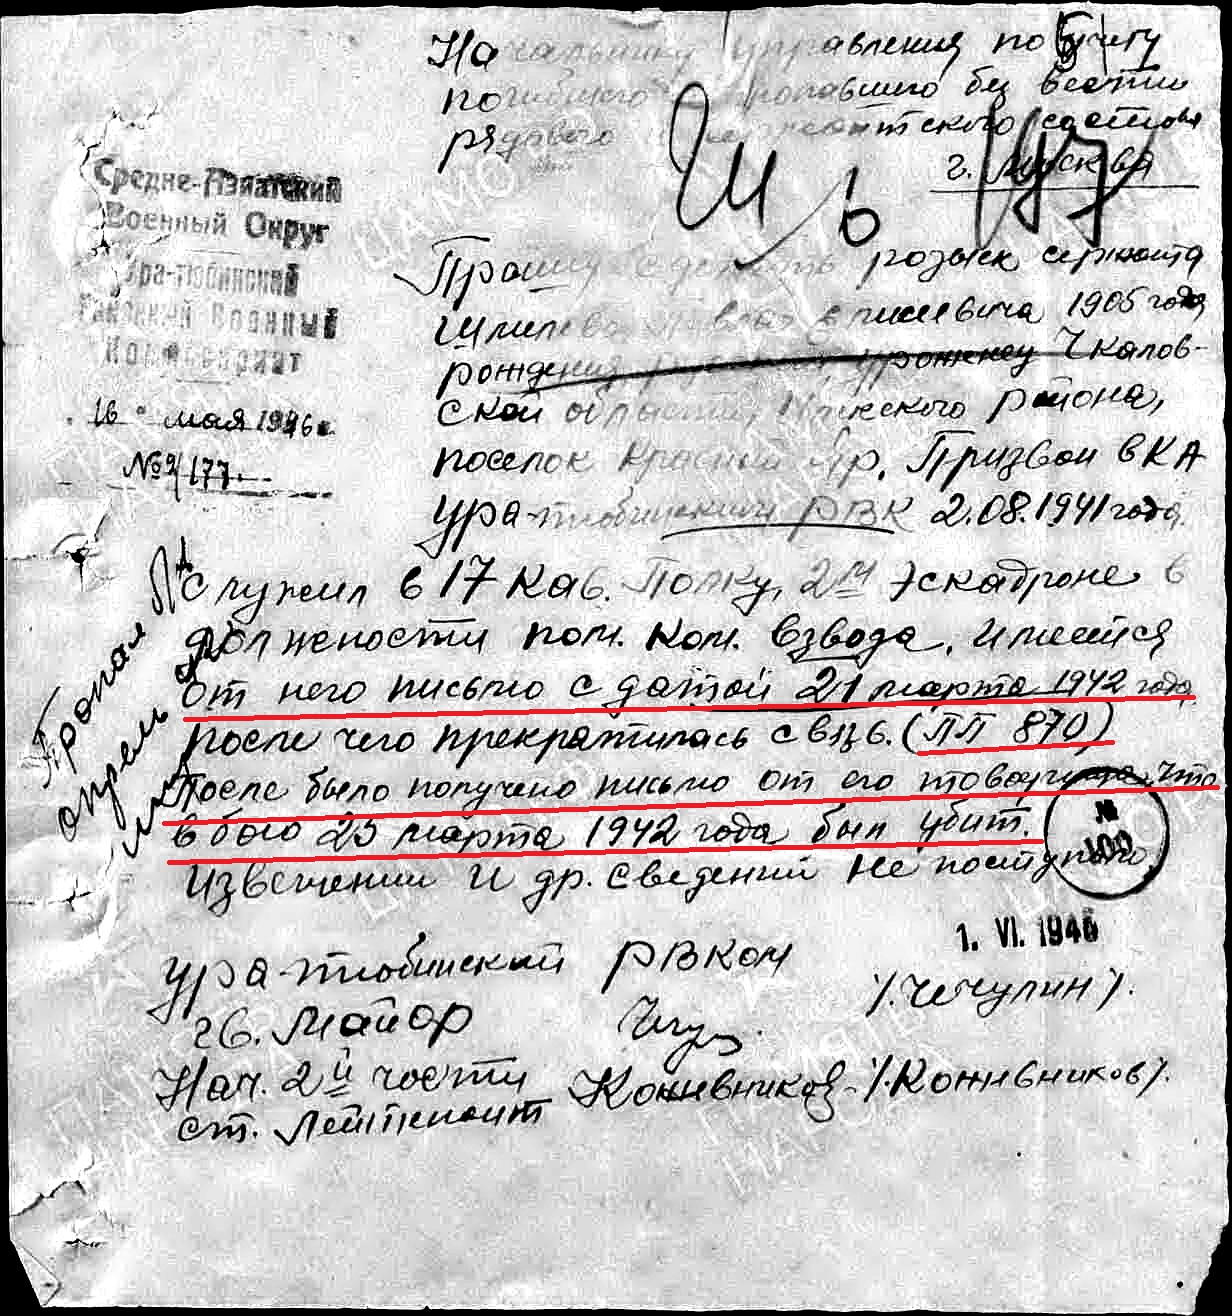 Начальнику управления по учету
погибшего и пропавшего без вести
рядового и сержантского состава
г. Москва
Ш 6 197
Средне-Азиатский
Военный Округ
Ура-тюбинский
Районный Военный
Комиссариат
16 мая 1946г.
№2/177
Прошу сделать розыск сержанта
1905 года
рождения, урожнец Чкалов-
ской области, района,
поселок Красный Яр, Призван в КА
ура-тюбинским РВК 2.08.1941 года.
Служил в 17 Кав. Полку, 2м Эскадроне в
должности пом. ком. взвода. Имеется
от него письмо с датой 21 марта 1942 года
после чего прекратилась связь. (ПП 870)
После было получено письмо от его товарища, что
в бою 25 марта 1942 года был убит.
Извещений и др. сведений не поступало.
Пропал
№
100
1. VI. 1946
ура-тюбинский РВКом
гв. Майор /.Чечулин/.
Нач. 2й части Кожевников /.Кожевников/.
ст. Лейтенант